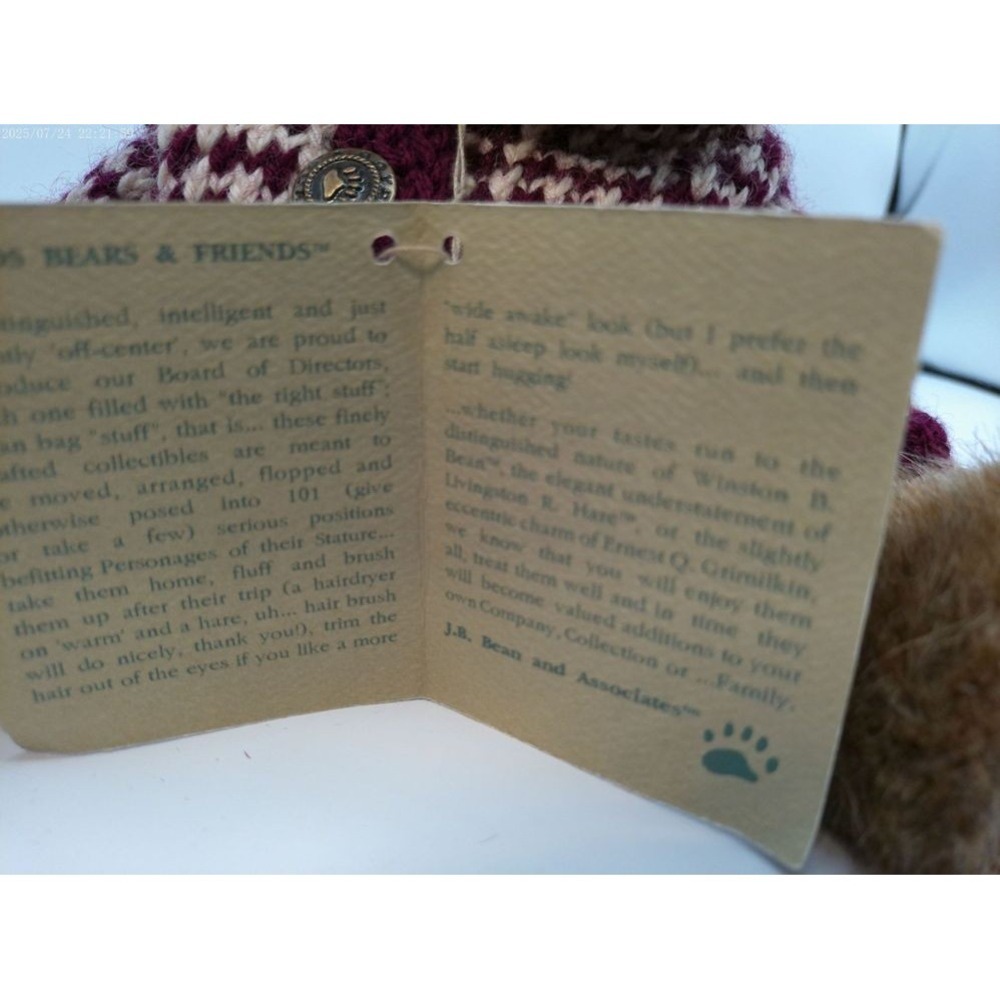 2025/07/24 22:21:
DS BEARS & FRIENDS™
tinguished, intelligent and just
tly 'off-center', we are proud to
oduce our Board of Directors,
h one filled with "the right stuff";
an bag "stuff", that is... these finely
afted collectibles are meant to
e moved, arranged, flopped and
otherwise posed into 101 (give
or take a few) serious positions
befitting Personages of their Stature...
take them home, fluff and brush
them up after their trip (a hairdryer
on 'warm' and a hare, uh... hair brush
will do nicely, thank you!), trim the
hair out of the eyes if you like a more
"wide awake" look (but I prefer the
half asleep look myself)... and then
start hugging!
...whether your tastes run to the
distinguished nature of Winston B.
Bean™, the elegant understatement of
Livingston R. Hare™, or the slightly
eccentric charm of Ernest Q. Grimilkin,
we know that you will enjoy them
all, treat them well and in time they
will become valued additions to your
own Company, Collection or ...Family.
J.B. Bean and Associates™